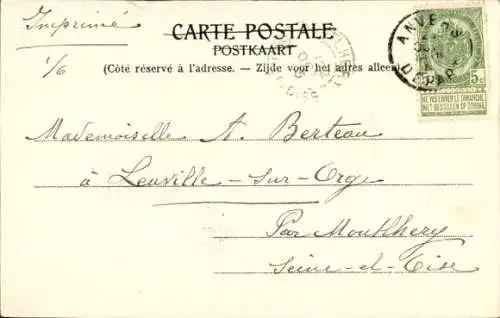 Imprimé
CARTE POSTALE
POSTKAART
(Côté réservé à l'adresse. – Zijde voor het adres alleen)
1/6
ANVERS
DÉPART
5c
NE PAS LIVRER LE DIMANCHE
NIET BESTELLEN OP ZONDAG
Mademoiselle A. Berteau
à Leuville-sur-Orge
Par Montlhery
Seine-et-Oise